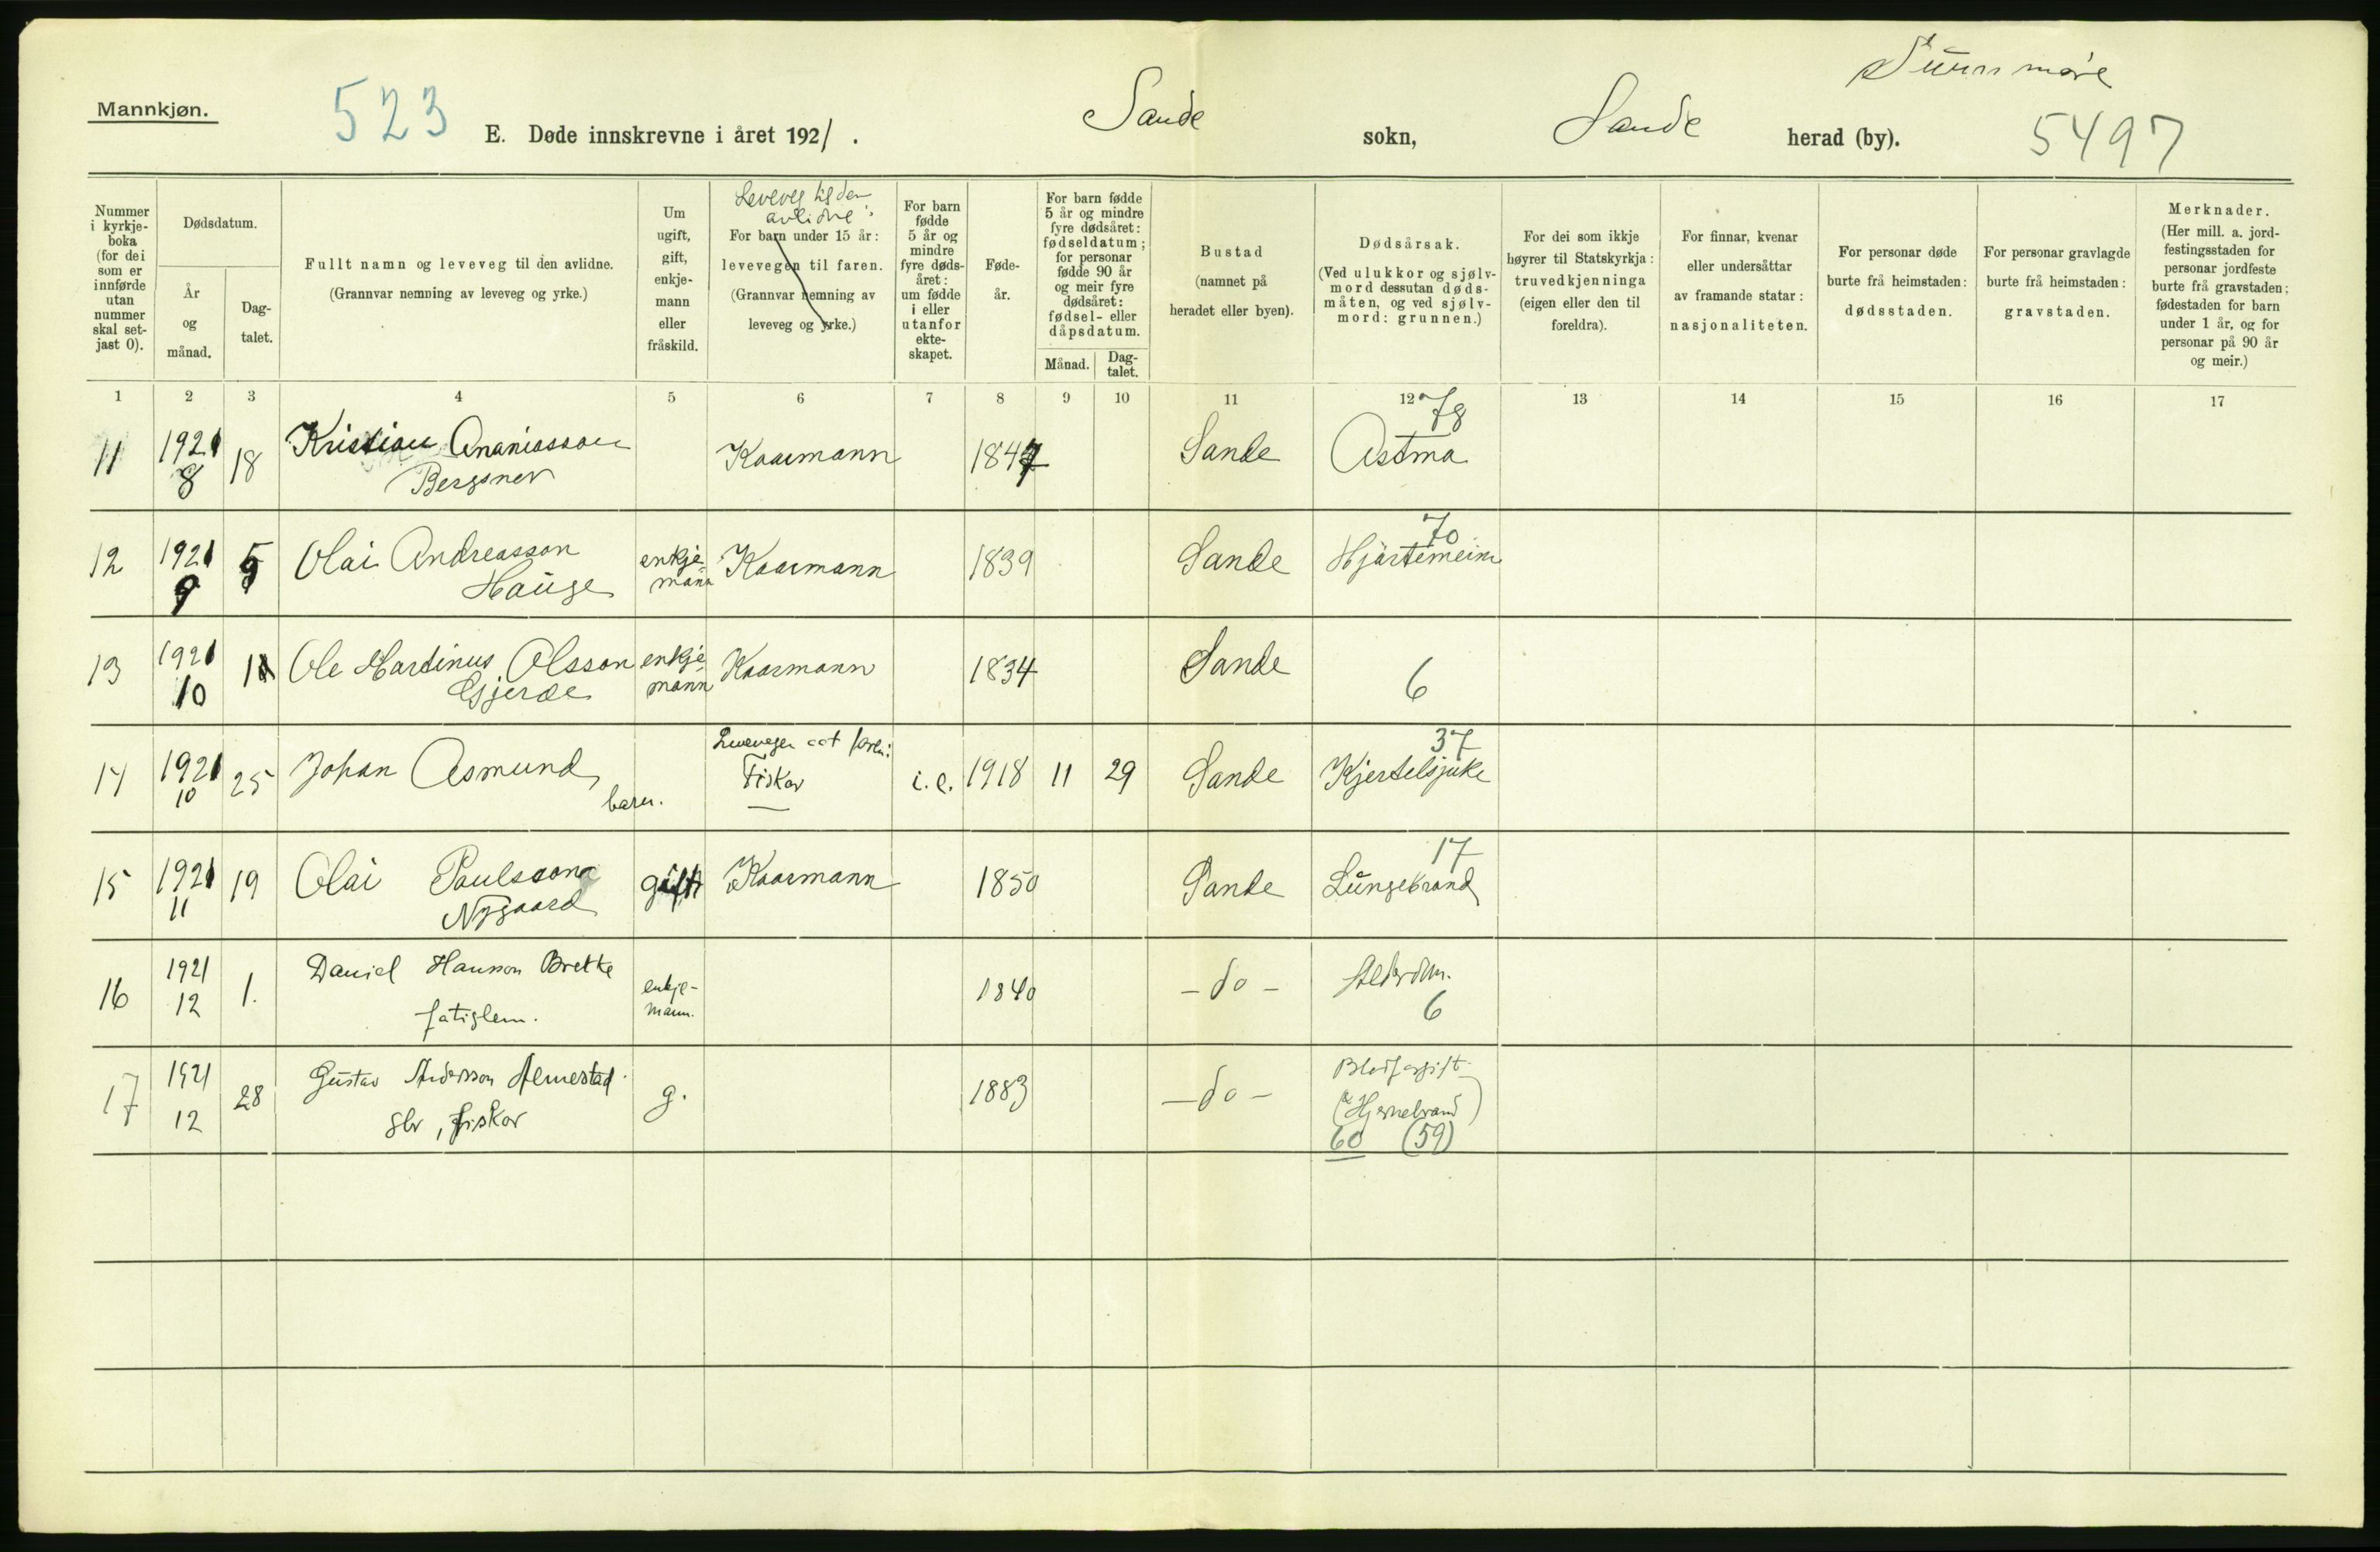 Sunnmøre
Mannkjøn.
523
E. Døde innskrevne i året 1921.
Sande sokn,
Sande herad (by).
5497
Nummer i kyrkje-boka (for dei som er innførde utan nummer skal set-jast 0).
Dødsdatum.
År og månad.
Dag-talet.
Fullt namn og leveveg til den avlidne.
(Grannvar nemning av leveveg og yrke.)
Um ugift, gift, enkje-mann eller fråskild.
Leveveg til den avlidne:
For barn under 15 år:
levevegen til faren.
(Grannvar nemning av
leveveg og yrke.)
For barn fødde 5 år og mindre fyre døds-året: um fødde i eller utanfor ekte-skapet.
Føde-år.
For barn fødde 5 år og mindre fyre dødsåret: fødseldatum; for personar fødde 90 år og meir fyre dødsåret: fødsel- eller dåpsdatum.
Månad.
Dag-talet.
Bustad
(namnet på
heradet eller byen).
Dødsårsak.
(Ved ulukkor og sjølv-mord dessutan døds-måten, og ved sjølv-mord: grunnen.)
For dei som ikkje
høyrer til Statskyrkja:
truvedkjenninga
(eigen eller den til
foreldra).
For finnar, kvenar
eller undersåttar
av framande statar:
nasjonaliteten.
For personar døde
burte frå heimstaden:
dødsstaden.
For personar gravlagde
burte frå heimstaden:
gravstaden.
Merknader.
(Her mill. a. jord-festingsstaden for personar jordfeste burte frå gravstaden; fødestaden for barn under 1 år, og for personar på 90 år og meir.)
1 2 3 4 5 6 7 8 9 10 11 12 13 14 15 16 17
11 1921 8 18 Kristian Ananiasson Bergsnev Kaarmann 1847 Sande 78 Astma
12 1921 9 5 Olai Andreasson Hauge enkje-mann Kaarmann 1839 Sande 70 Hjartemein
13 1921 10 11 Ole Martinus Olsson Gjerde enkje-mann Kaarmann 1834 Sande 6
14 1921 10 25 Johan Asmund, barn. Fiskar i.e. 1918 11 29 Sande 37 Kjertelsjuke
15 1921 11 19 Olai Paulsson Nygaard gift Kaarmann 1850 Sande 17 Lungebrand
16 1921 12 1. Daniel Hansson Brekke fatiglem. enkje-mann. 1840 - do - Alderdom. 6
17 1921 12 28 Gustav Andersson Almestad gbr, fiskar g. 1883 - do - Blodforgift. (Hjernebrand) 60 (59)